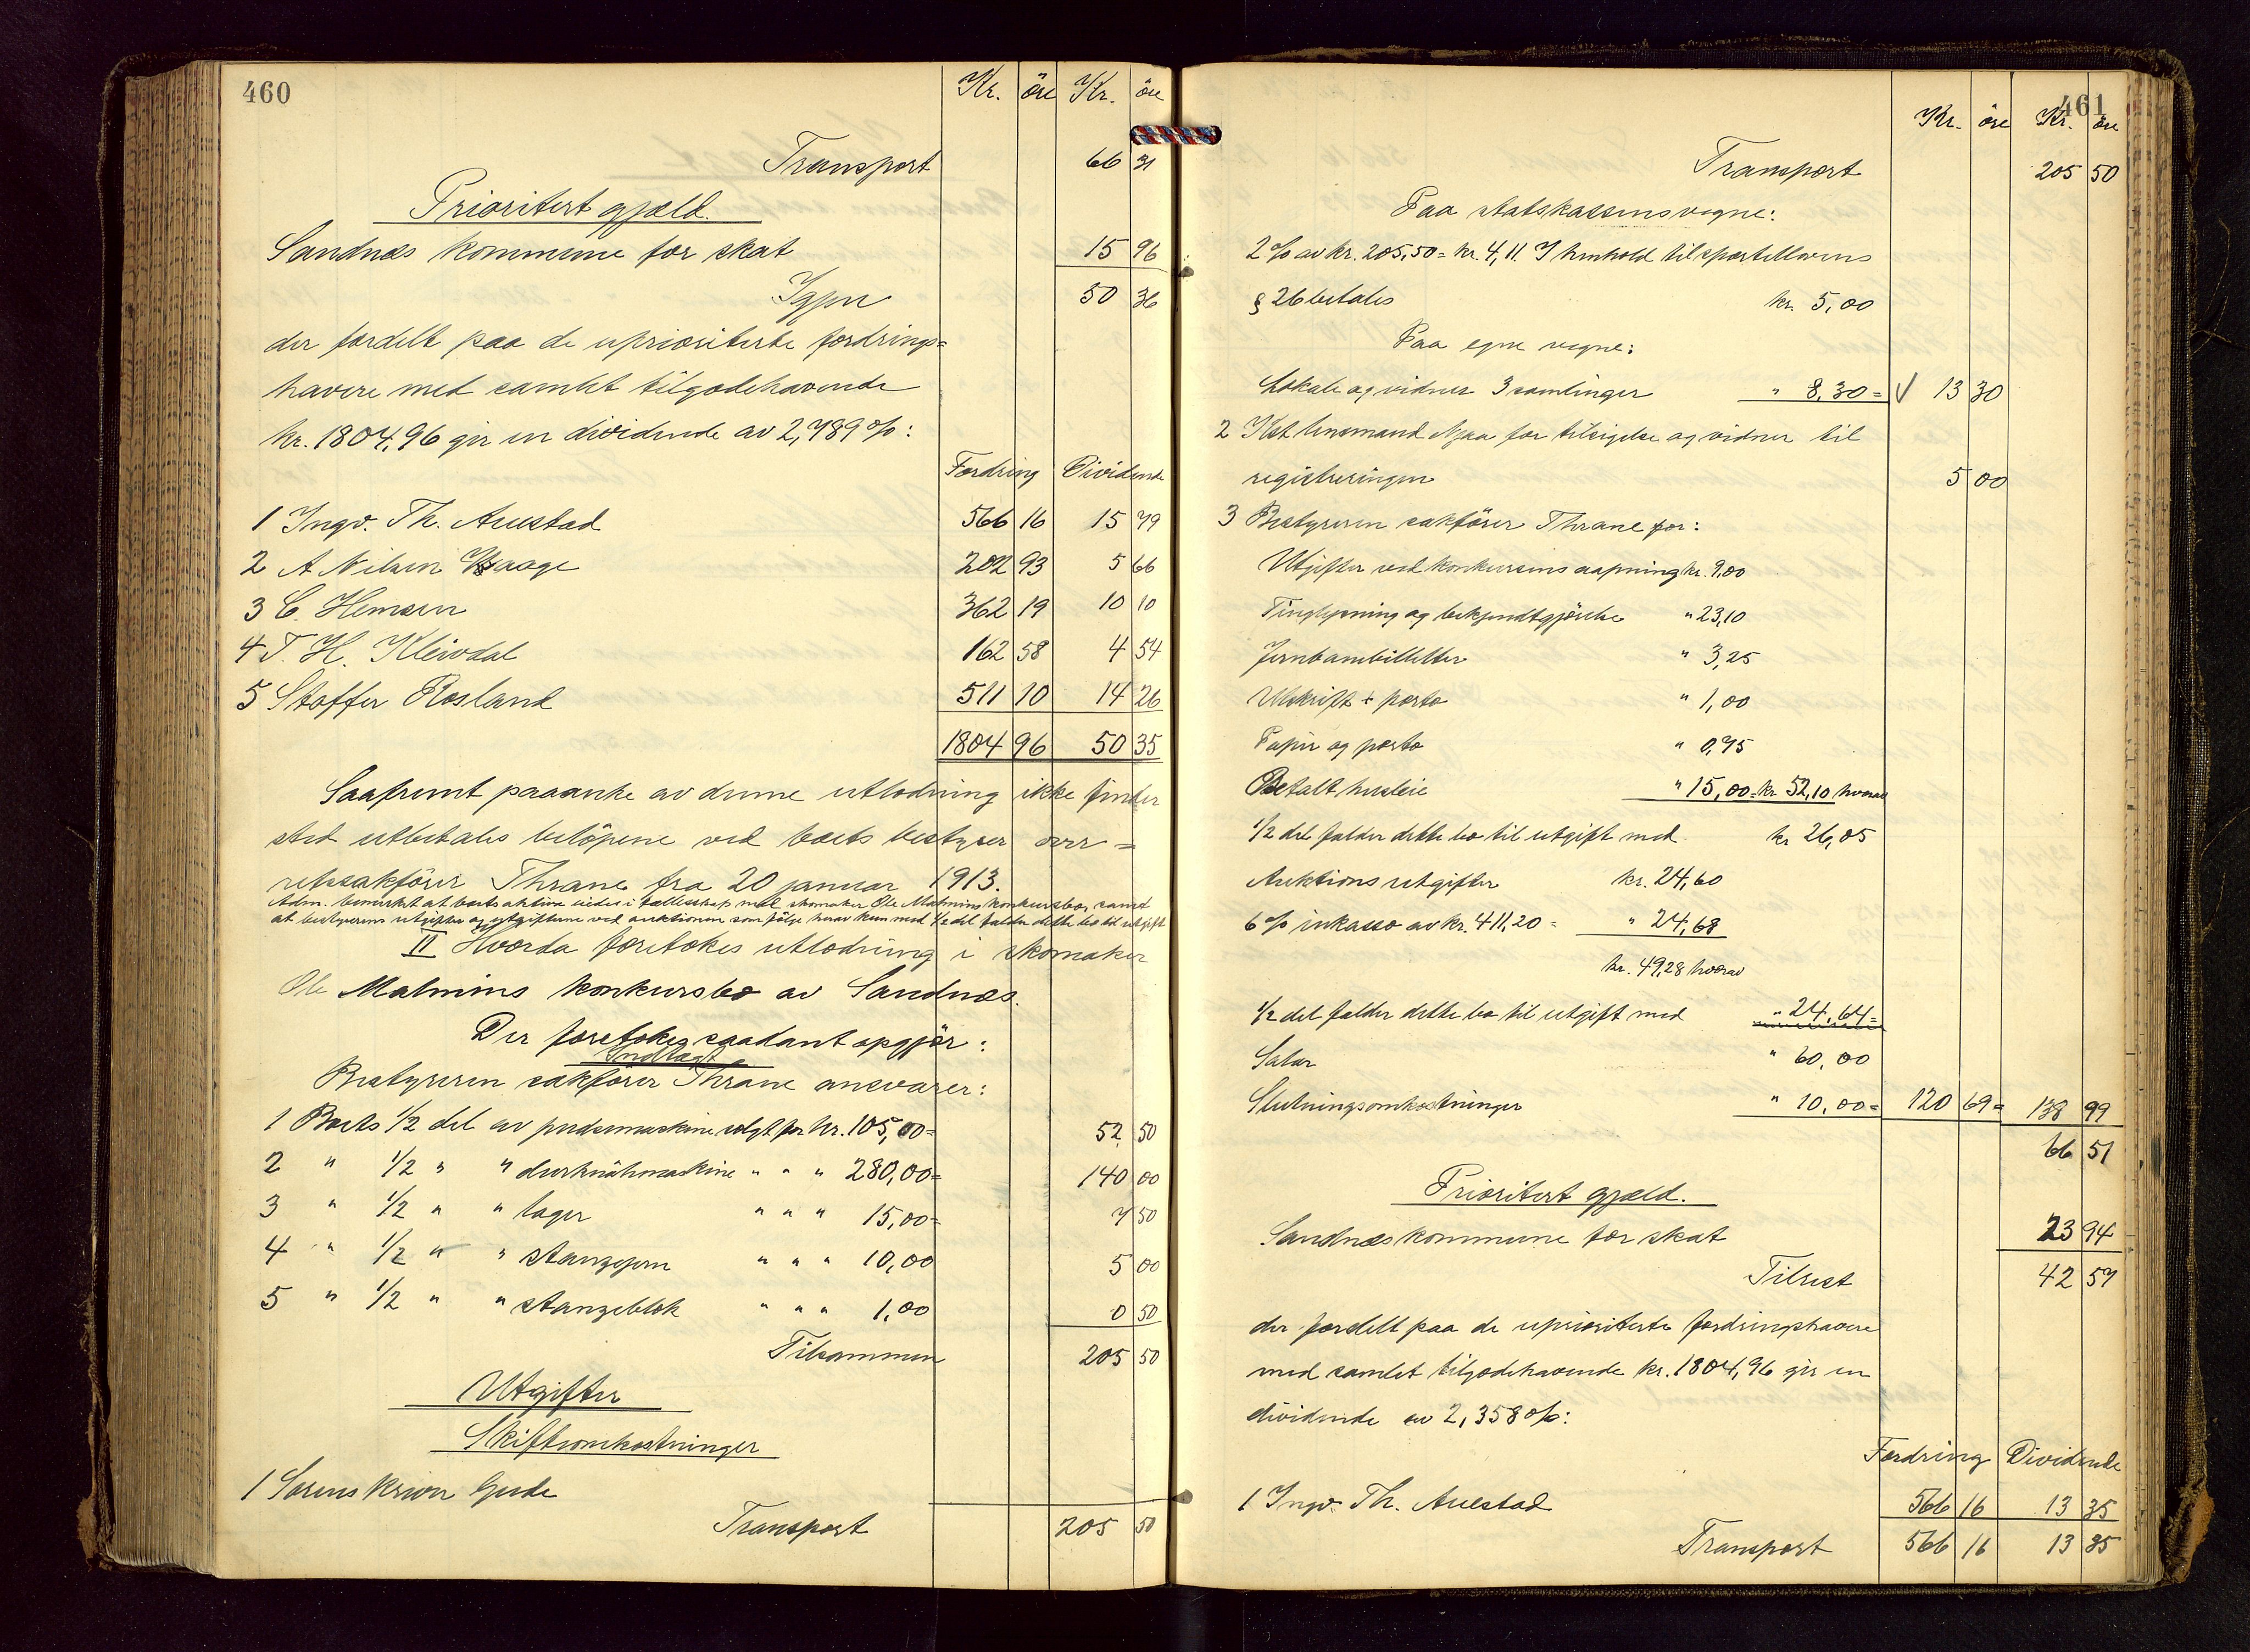 460
Kr. öre Kr. öre
Transport 66 31
Prioritert gjæld.
Sandnæs kommune for skat 15 96
Igjen 50 36
der fordelt paa de uprioriterte fordrings=
havere med samlet tilgodehavende
kr. 1804,96 gir en dividende av 2,789 %:
Fordring Dividende
1 Ingv. Th. Auestad 566 16 15 79
2 A Nilsen Waage 202 93 5 66
3 C. Hemsen 362 19 10 10
4 T. H. Kleivdal 162 58 4 54
5 Stoffer Rosland 511 10 14 26
1804 96 50 35
Saafremt paaanke av denne utlodning ikke finder
sted utbetales belöpene ved boets bestyrer over=
retssakförer Thrane fra 20 januar 1913.
Adm. bemerket at boets aktiva eides i fællesskap med skomaker Ole Malmins konkursbo, samt
at bestyrerens utgifter og utgiftene ved auktionen som fölge herav kun med 1/2 del falder dette bo til utgift
II Hvorda foretokes utlodning i skomaker
Ole Malmins konkursbo av Sandnæs.
Der foretokes saadant opgjör:
Indtægt
Bestyreren sakförer Thrane ansvarer:
1 Boets 1/2 del av pudsemaskine solgt for kr. 105,00= 52 50
2 " 1/2 " " durknähmaskine " " " 280,00= 140 00
3 " 1/2 " " lager " " " 15,00= 7 50
4 " 1/2 " " stanzejern " " " 10,00 5 00
5 " 1/2 " " stanzeblok " " " 1,00 0 50
Tilsammen 205 50
Utgifter
Skifteomkostninger
1 Sorenskriver Gude
Transport 205 50
461
Kr. öre Kr. öre
Transport 205 50
Paa statskassens vegne:
2 % av kr. 205,50= kr. 4,11. I henhold til sportellovens
§ 26 betales kr. 5,00
Paa egne vegne:
Lokale og vidner 3 samlinger " 8,30= √ 13 30
2 Kst lensmand Njaa for tilsigelse og vidner til
registreringen 5 00
3 Bestyreren sakförer Thrane for:
Utgifter ved konkursens aapning kr. 9,00
Tinglysning og bekjendtgjörelse " 23,10
Jernbanebilletter " 3,25
Utskrift + porto " 1,00
Papir og porto " 0,75
Betalt husleie " 15,00= kr 52,10 hvorav
1/2 del falder dette bo til utgift med kr 26,05
Auktionsutgifter kr. 24,60
6 % inkasso av kr. 411,20= " 24,68
kr. 49,28 hvorav
1/2 del falder dette bo til utgift med " 24,64=
Salær " 60,00
Slutningsomkostninger " 10,00= 120 69= 138 99
66 51
Prioritert gjæld.
Sandnæs kommune for skat 23 94
Tilrest 42 57
der fordelt paa de uprioriterte fordringshavere
med samlet tilgodehavende kr. 1804,96 gir en
dividende av 2,358 %:
Fordring Dividende
1 Ingv. Th. Auestad 566 16 13 35
Transport 566 16 13 35